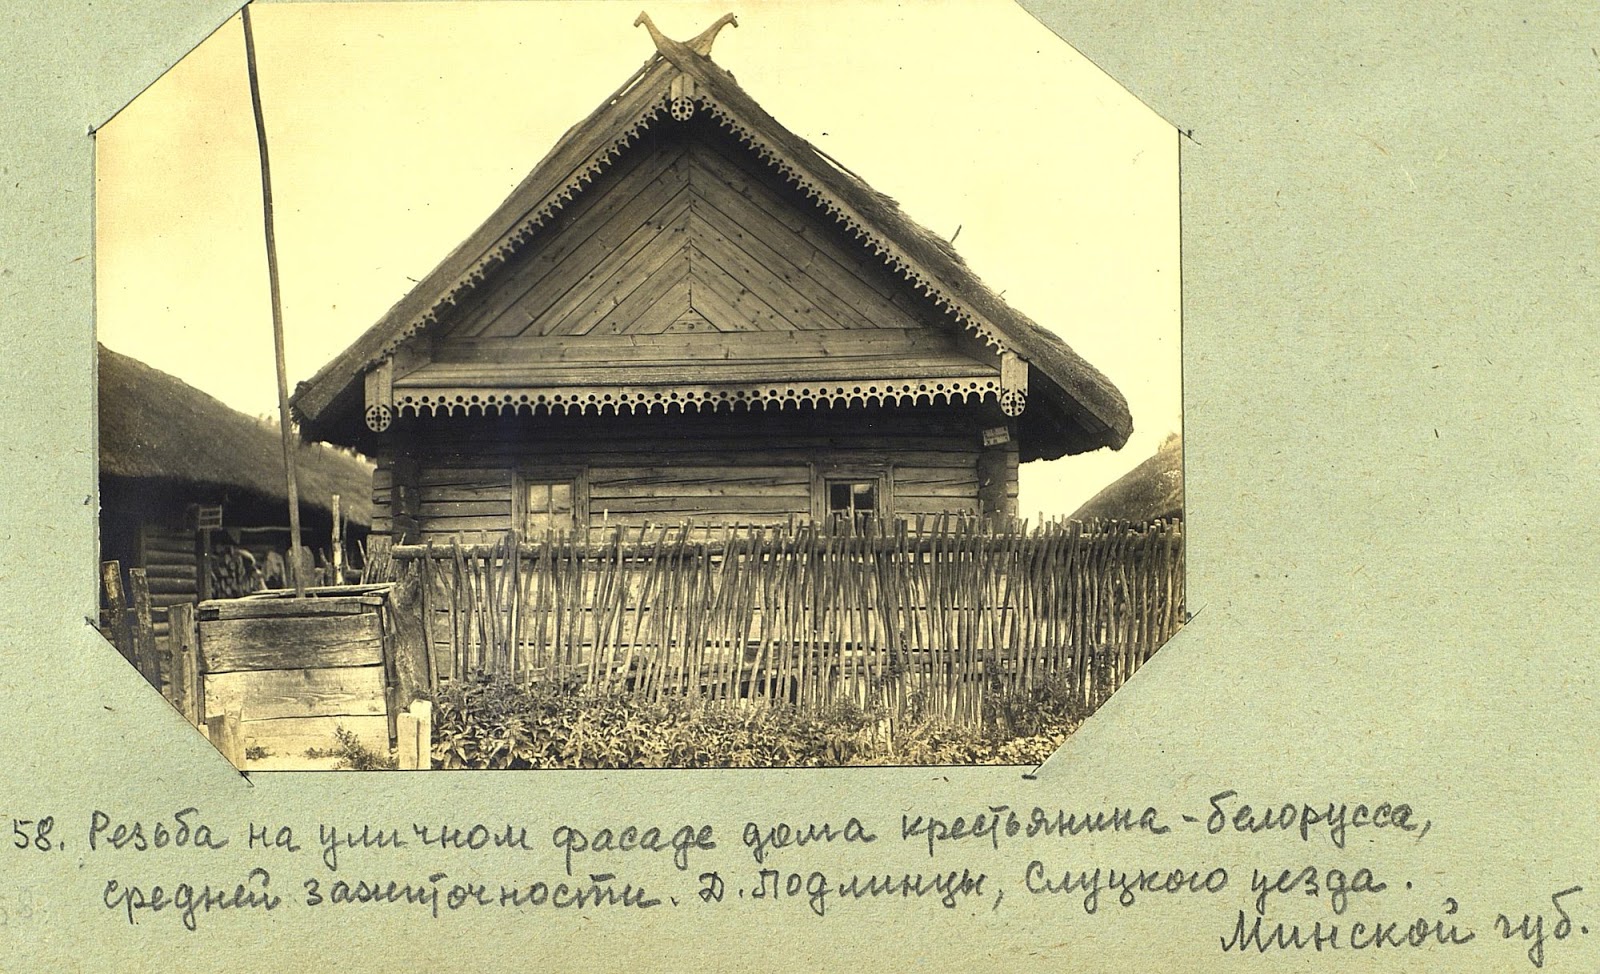 58. Резьба на уличном фасаде дома крестьянина-белорусса,
средней зажиточности. Д. Подлинцы, Слуцкого уезда.
Минской губ.